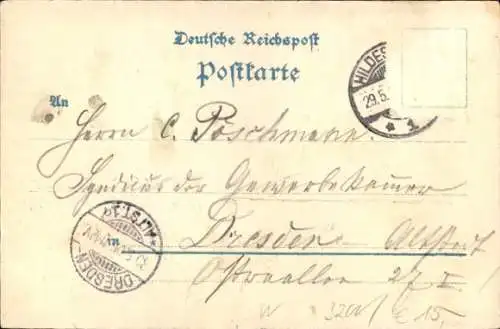 Deutsche Reichspost
Postkarte
HILDES
29.5.
* 1
An
Herrn C. Pöschmann.
Syndicus der Gewerbekammer
in Dresden-Altstadt
Ostraallee 27 I
DRESDEN-
ALTST. 19
W 3201 € 15.